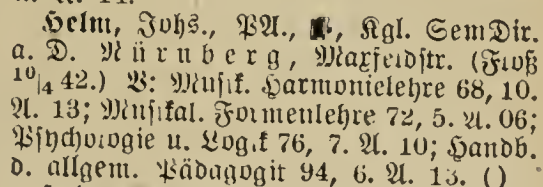 Helm, Johs., PA., Kgl. SemDir.
a. D. Nürnberg, Maxfeldstr. (Floß
10|4 42.) V: Musik. Harmonielehre 68, 10.
A. 13; Musikal. Formenlehre 72, 5. A. 06;
Psychologie u. Logik 76, 7. A. 10; Handb.
d. allgem. Pädagogik 94, 6. A. 13. ()